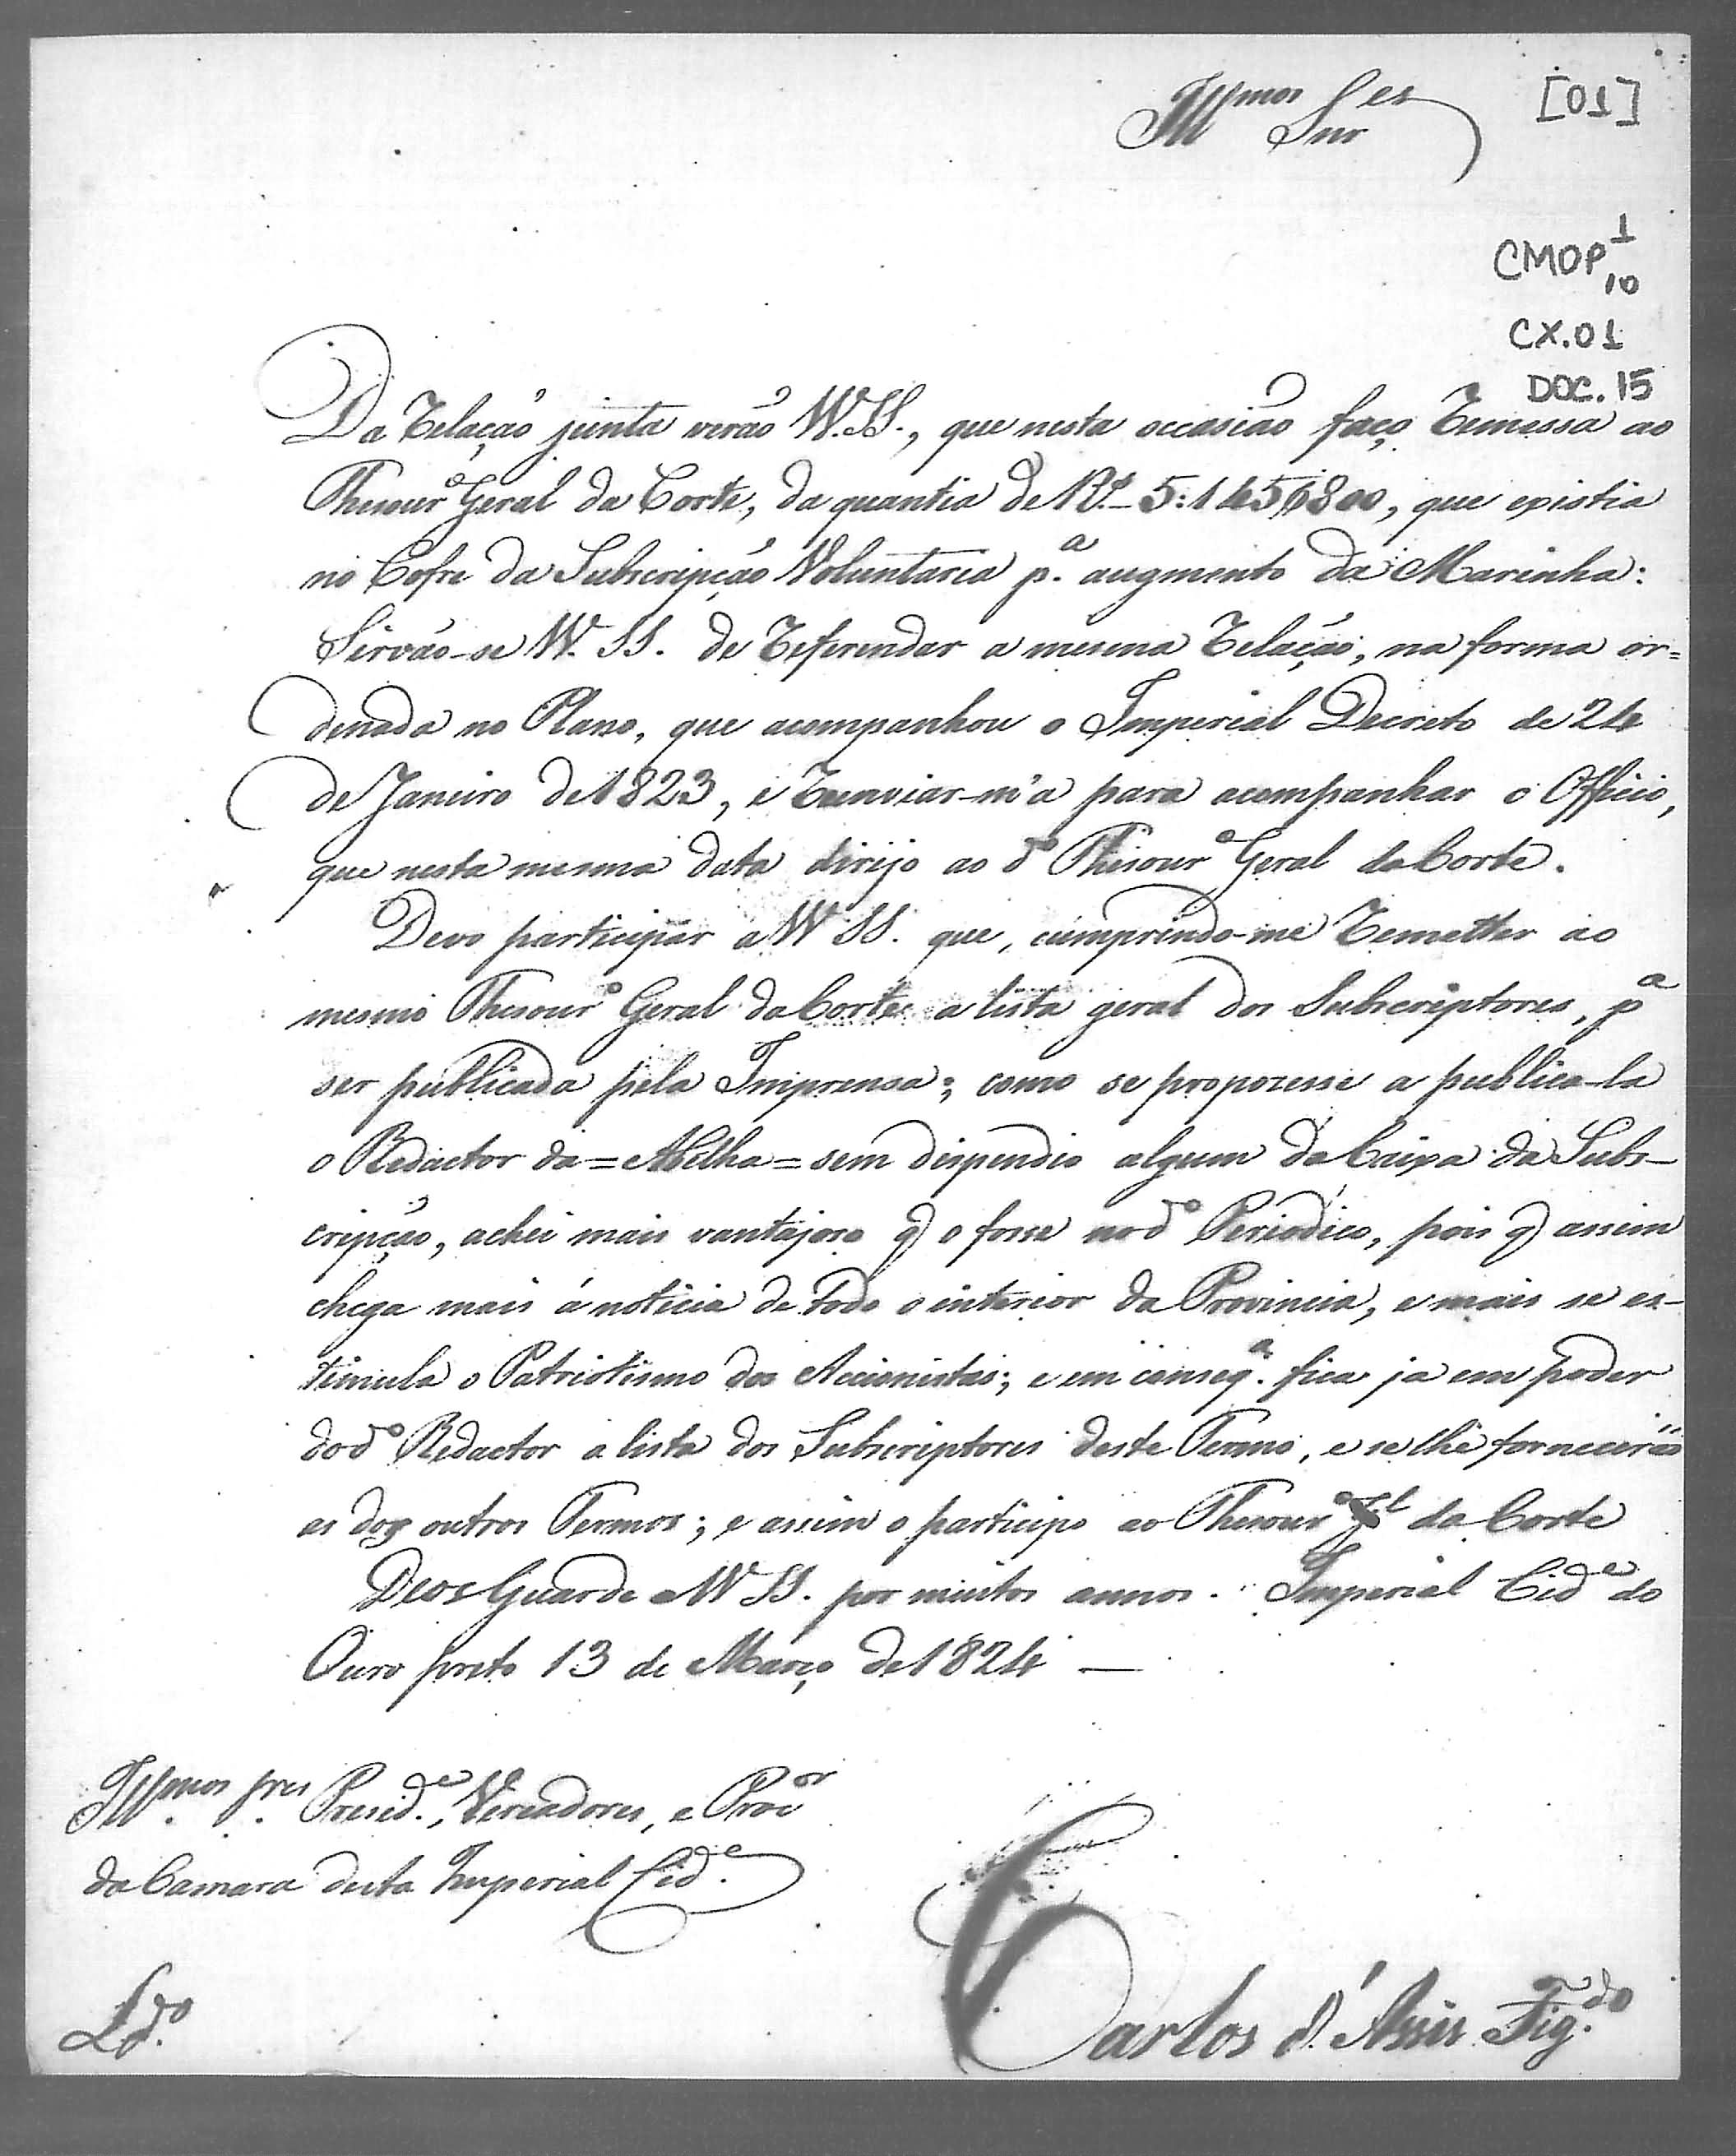 Illmos Snres
[01]
CMOP 1
10
CX.01
DOC. 15
Da Relação junta verão VV.SS., que nesta occasião faço Remessa ao
Thesourº Geral da Corte, da quantia de Rs. 5:145$800, que existia
no Cofre da Subscripção Voluntaria pª augmento da Marinha:
Sirvão-se VV. SS. de Referendar a mesma Relação, na forma or=
denada no Plano, que acompanhou o Imperial Decreto de 24
de Janeiro de 1823, e Reenviar-m'a para acompanhar o Officio,
que nesta mesma data dirijo ao dº Thesourº Geral da Corte.
Devo participar a VV SS. que, cumprindo-me Remetter ao
mesmo Thesourº Geral da Corte a lista geral dos Subscriptores, pª
ser publicada pela Imprensa; como se propozesse a publica-la
o Redactor da =Abelha= sem dispendio algum da Caixa da Subs-
cripção, achei mais vantajoso q o fosse no dº Periodico, pois q assim
chega mais á noticia de todo o interior da Provincia, e mais se es-
timula o Patriotismo dos Accionistas; e em conseqª. fica ja em poder
do dº Redactor a lista dos Subscriptores deste Termo, e se lhe fornecerão
as dos outros Termos; e assim o participo ao Thesourº Gl da Corte
Deos Guarde a VV SS. por muitos annos. Imperial Cide do
Ouro preto 13 de Março de 1824 —
Illmos Snres Preside., Vereadores, e Procor
da Camara desta Imperial Cide.
Rdo.
Carlos d'Assis Figdo